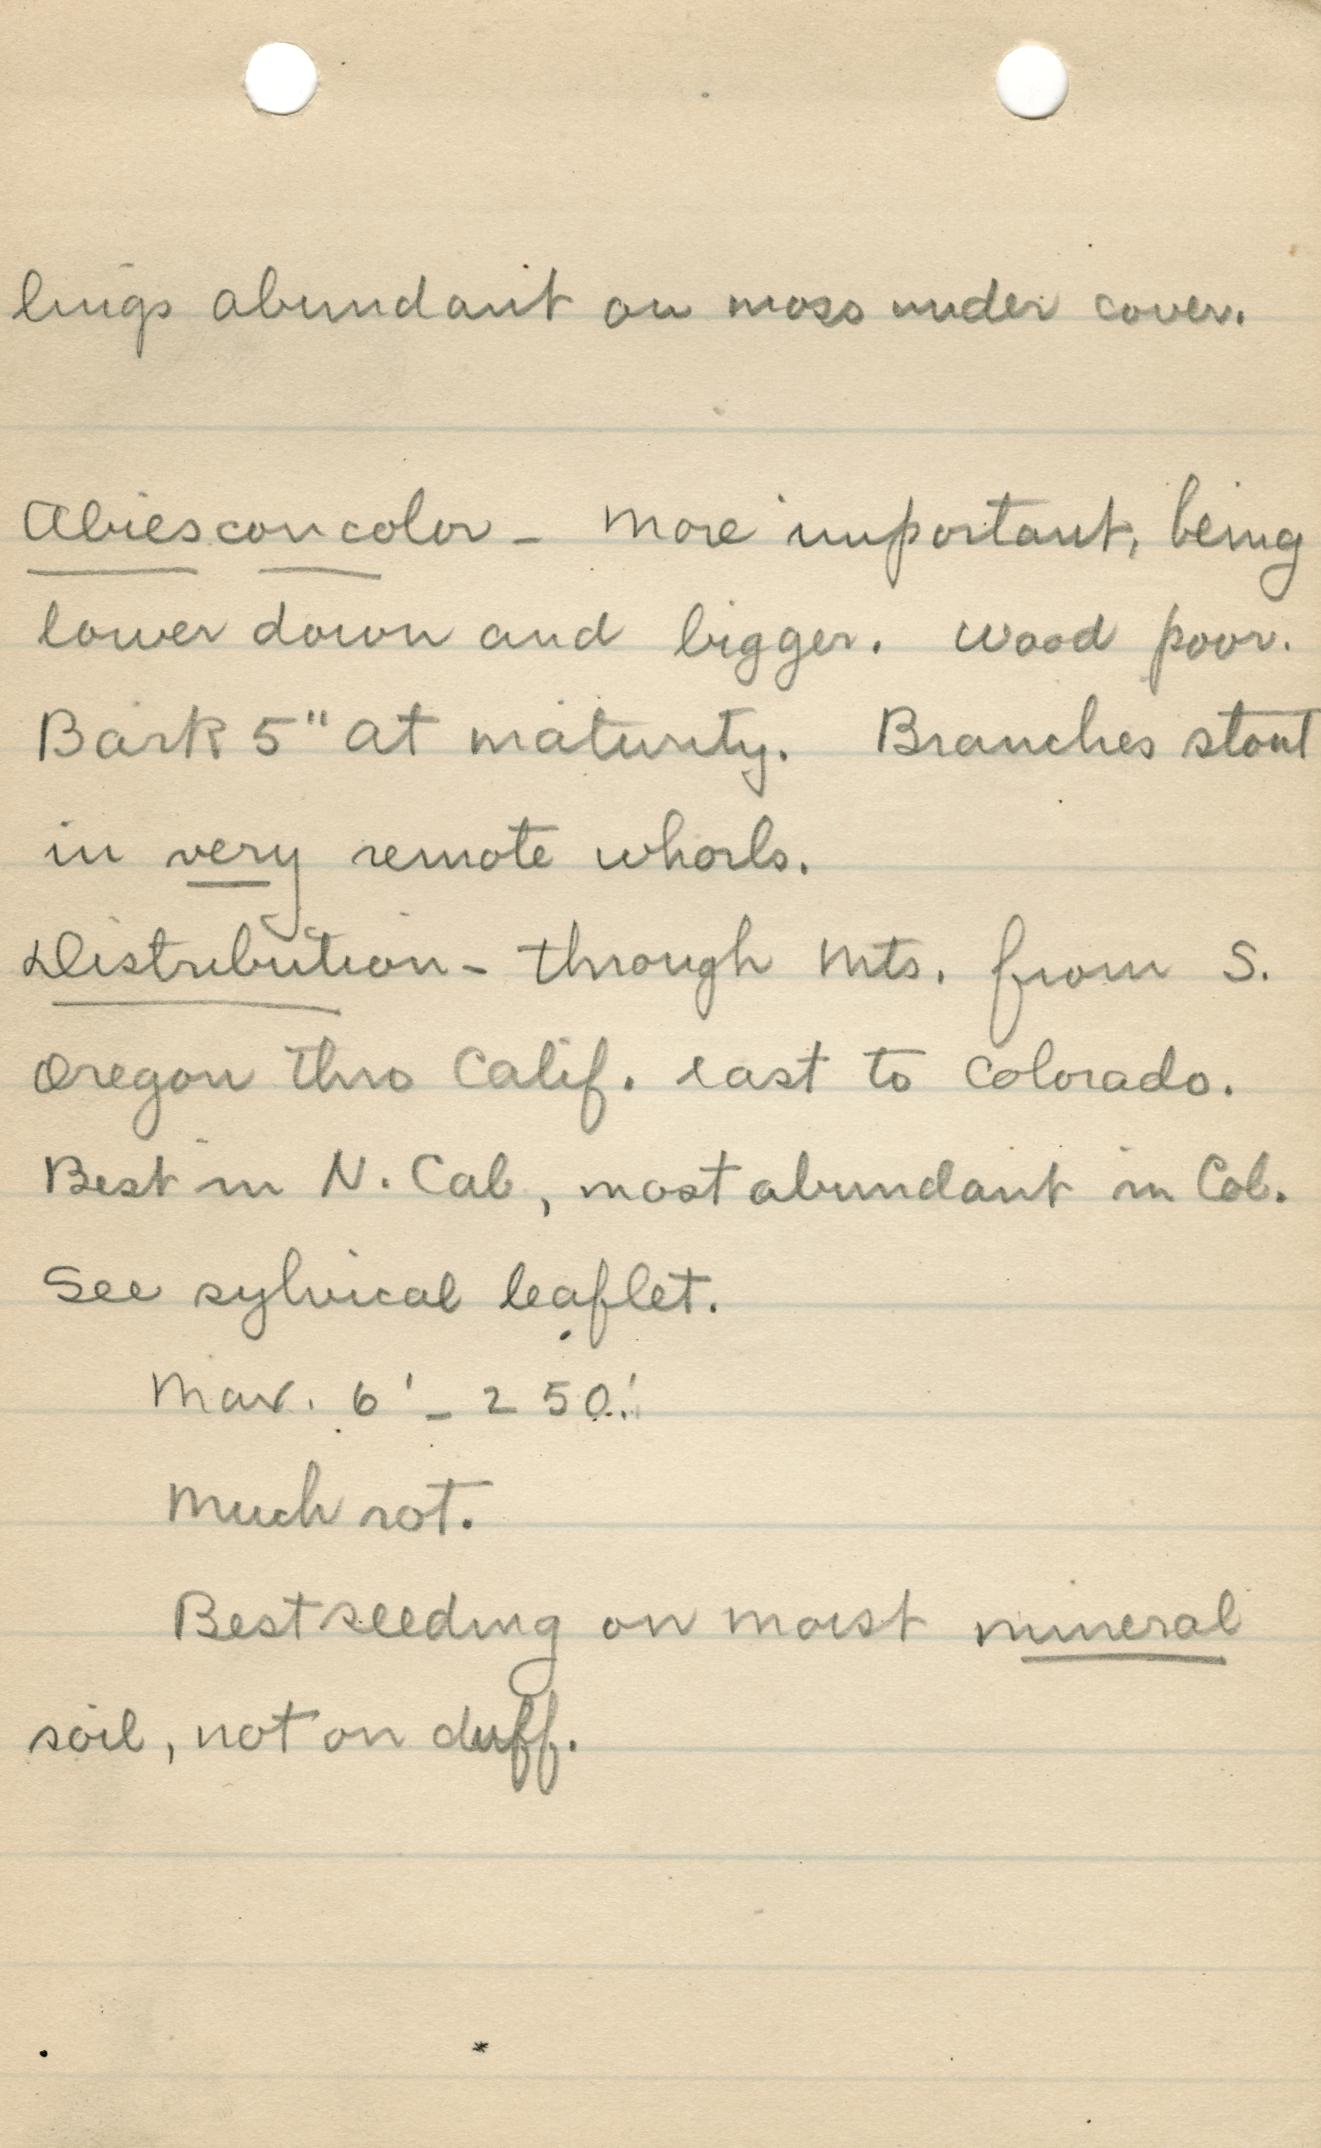 lings abundant on moss under cover.
Abies concolor - More important, being
lower down and bigger. Wood poor.
Bark 5" at maturity. Branches stout
in very remote whorls.
Distribution - through Mts. from S.
Oregon thro Calif. east to Colorado.
Best in N. Cal, most abundant in Col.
See sylvical leaflet.
Max. 6' - 250'.
Much rot.
Best seeding on moist mineral
soil, not on duff.